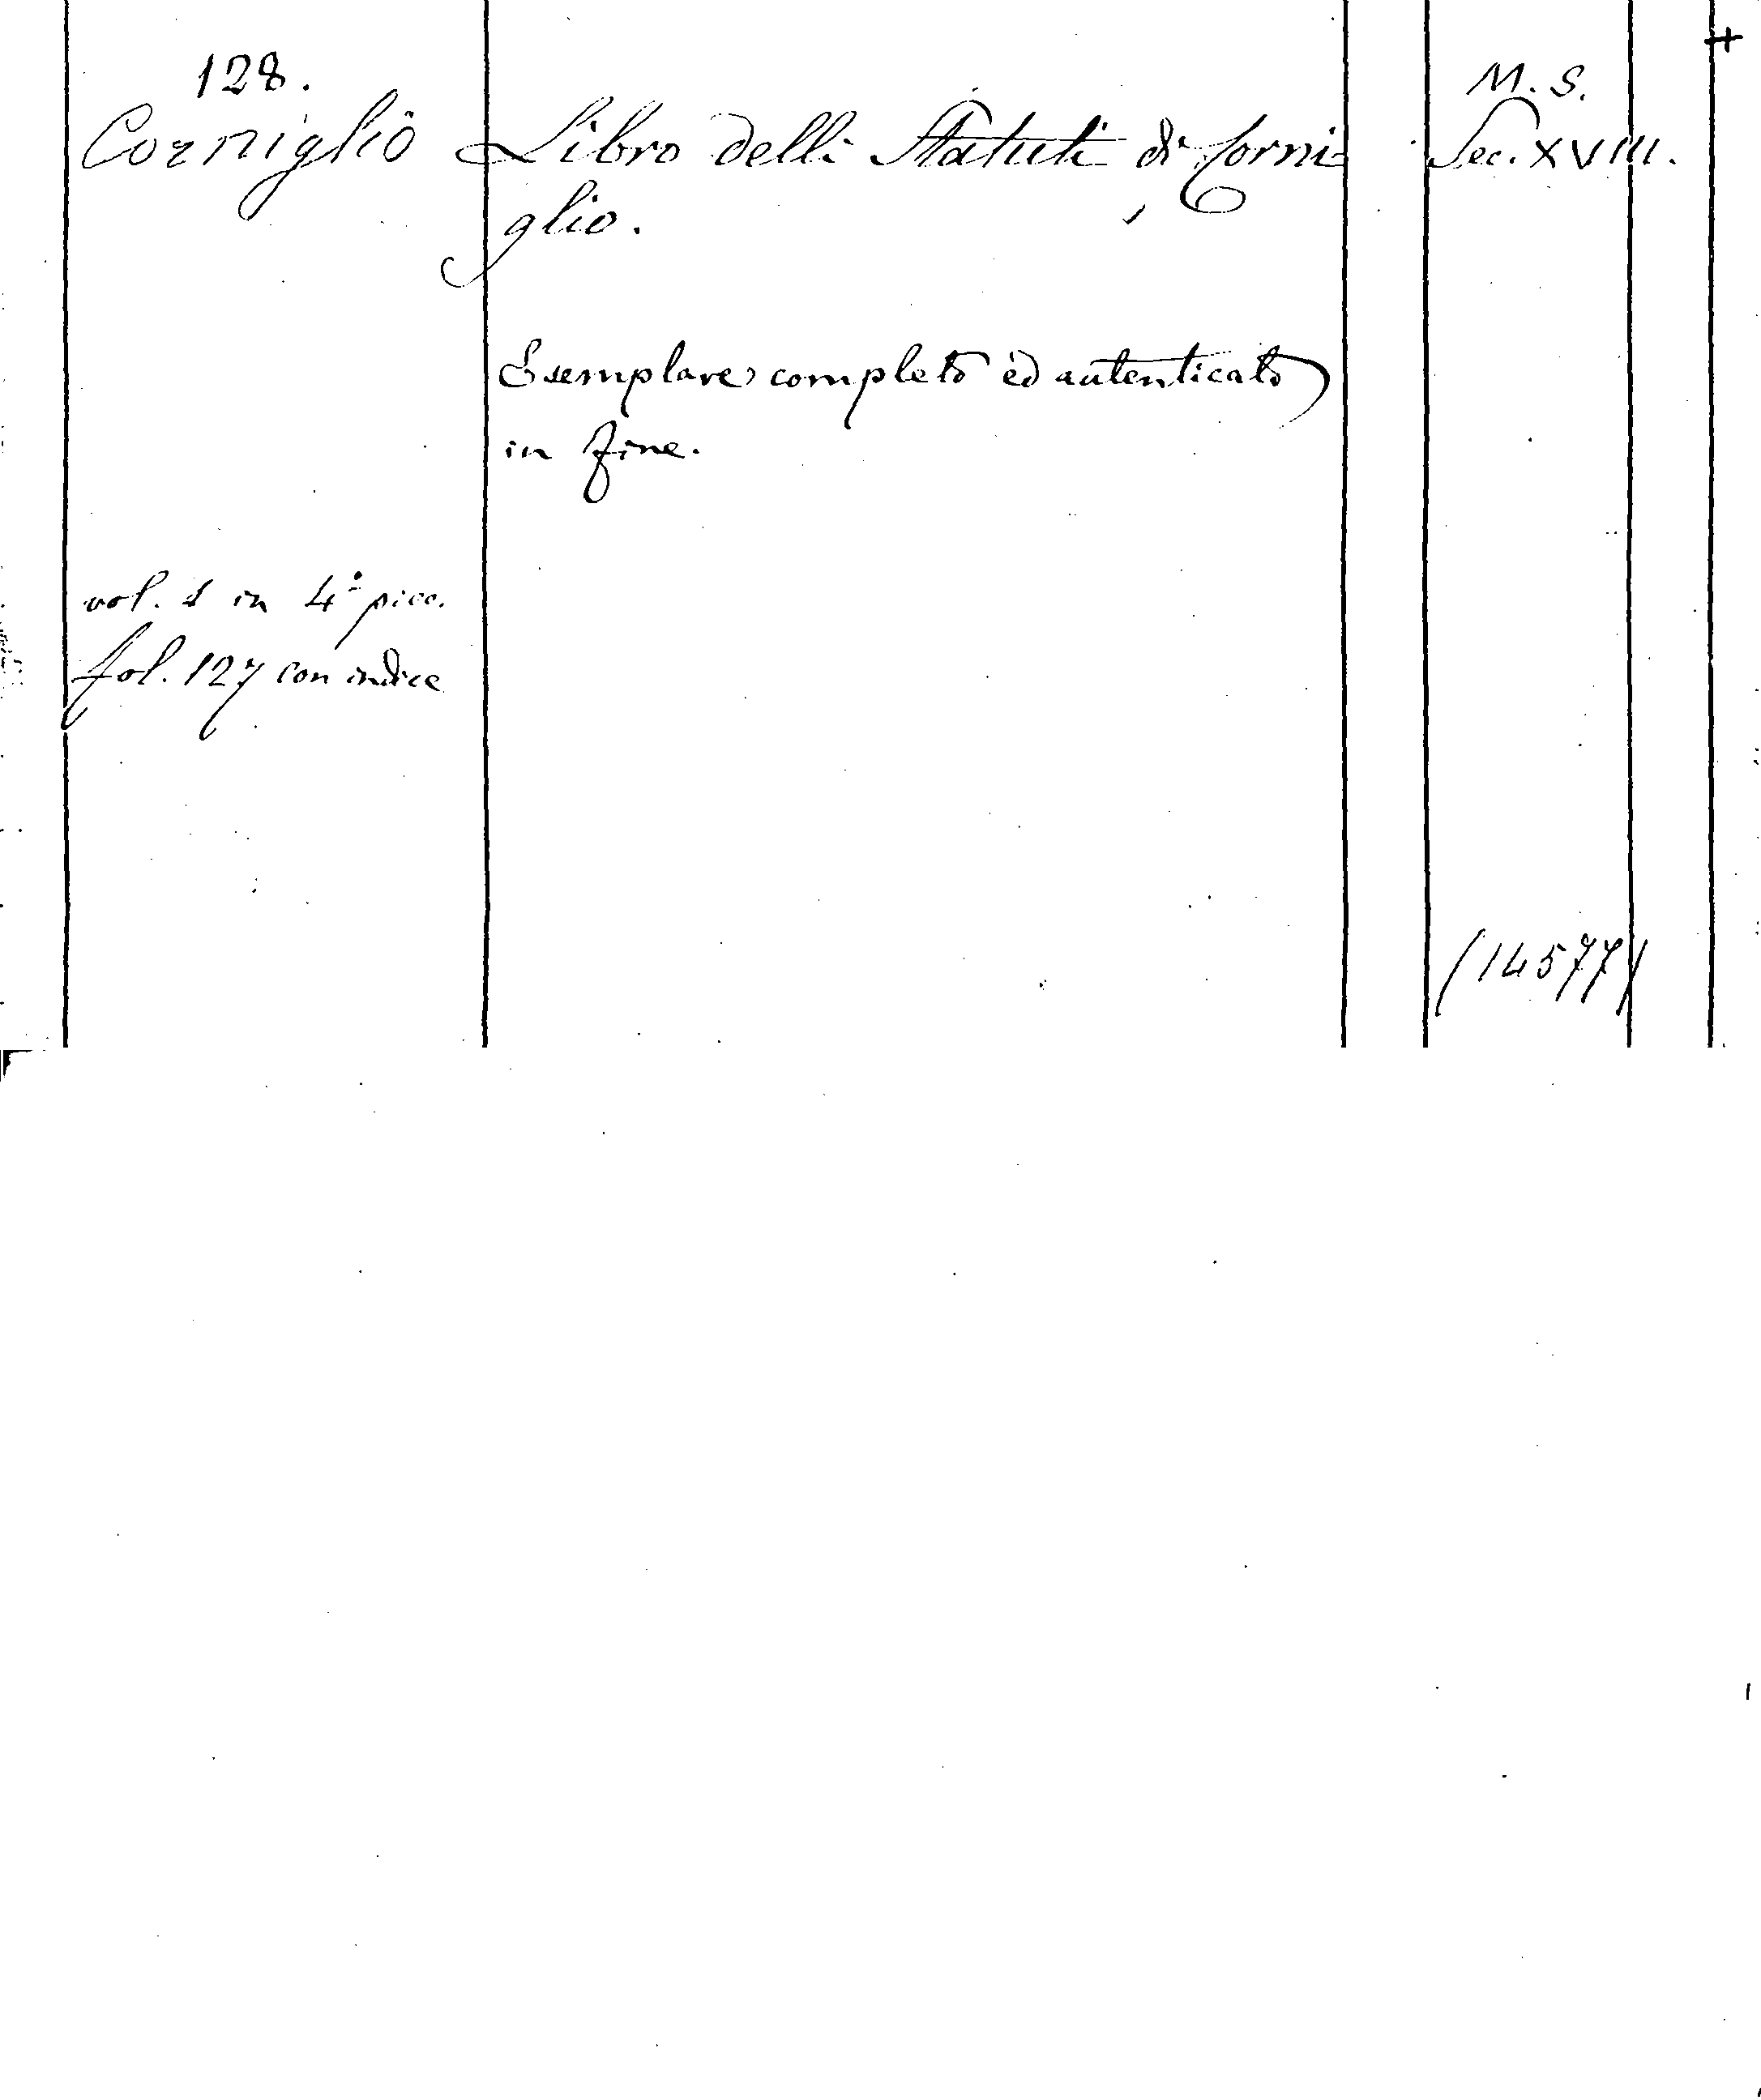 128.
Corniglio
vol. 1 in 4º picc.
fol. 127 con indice
Libro delli Statuti di Corni=
glio.
Esemplare completo ed autenticato
in fine.
+
M. S.
Sec. XVIII.
(14577)